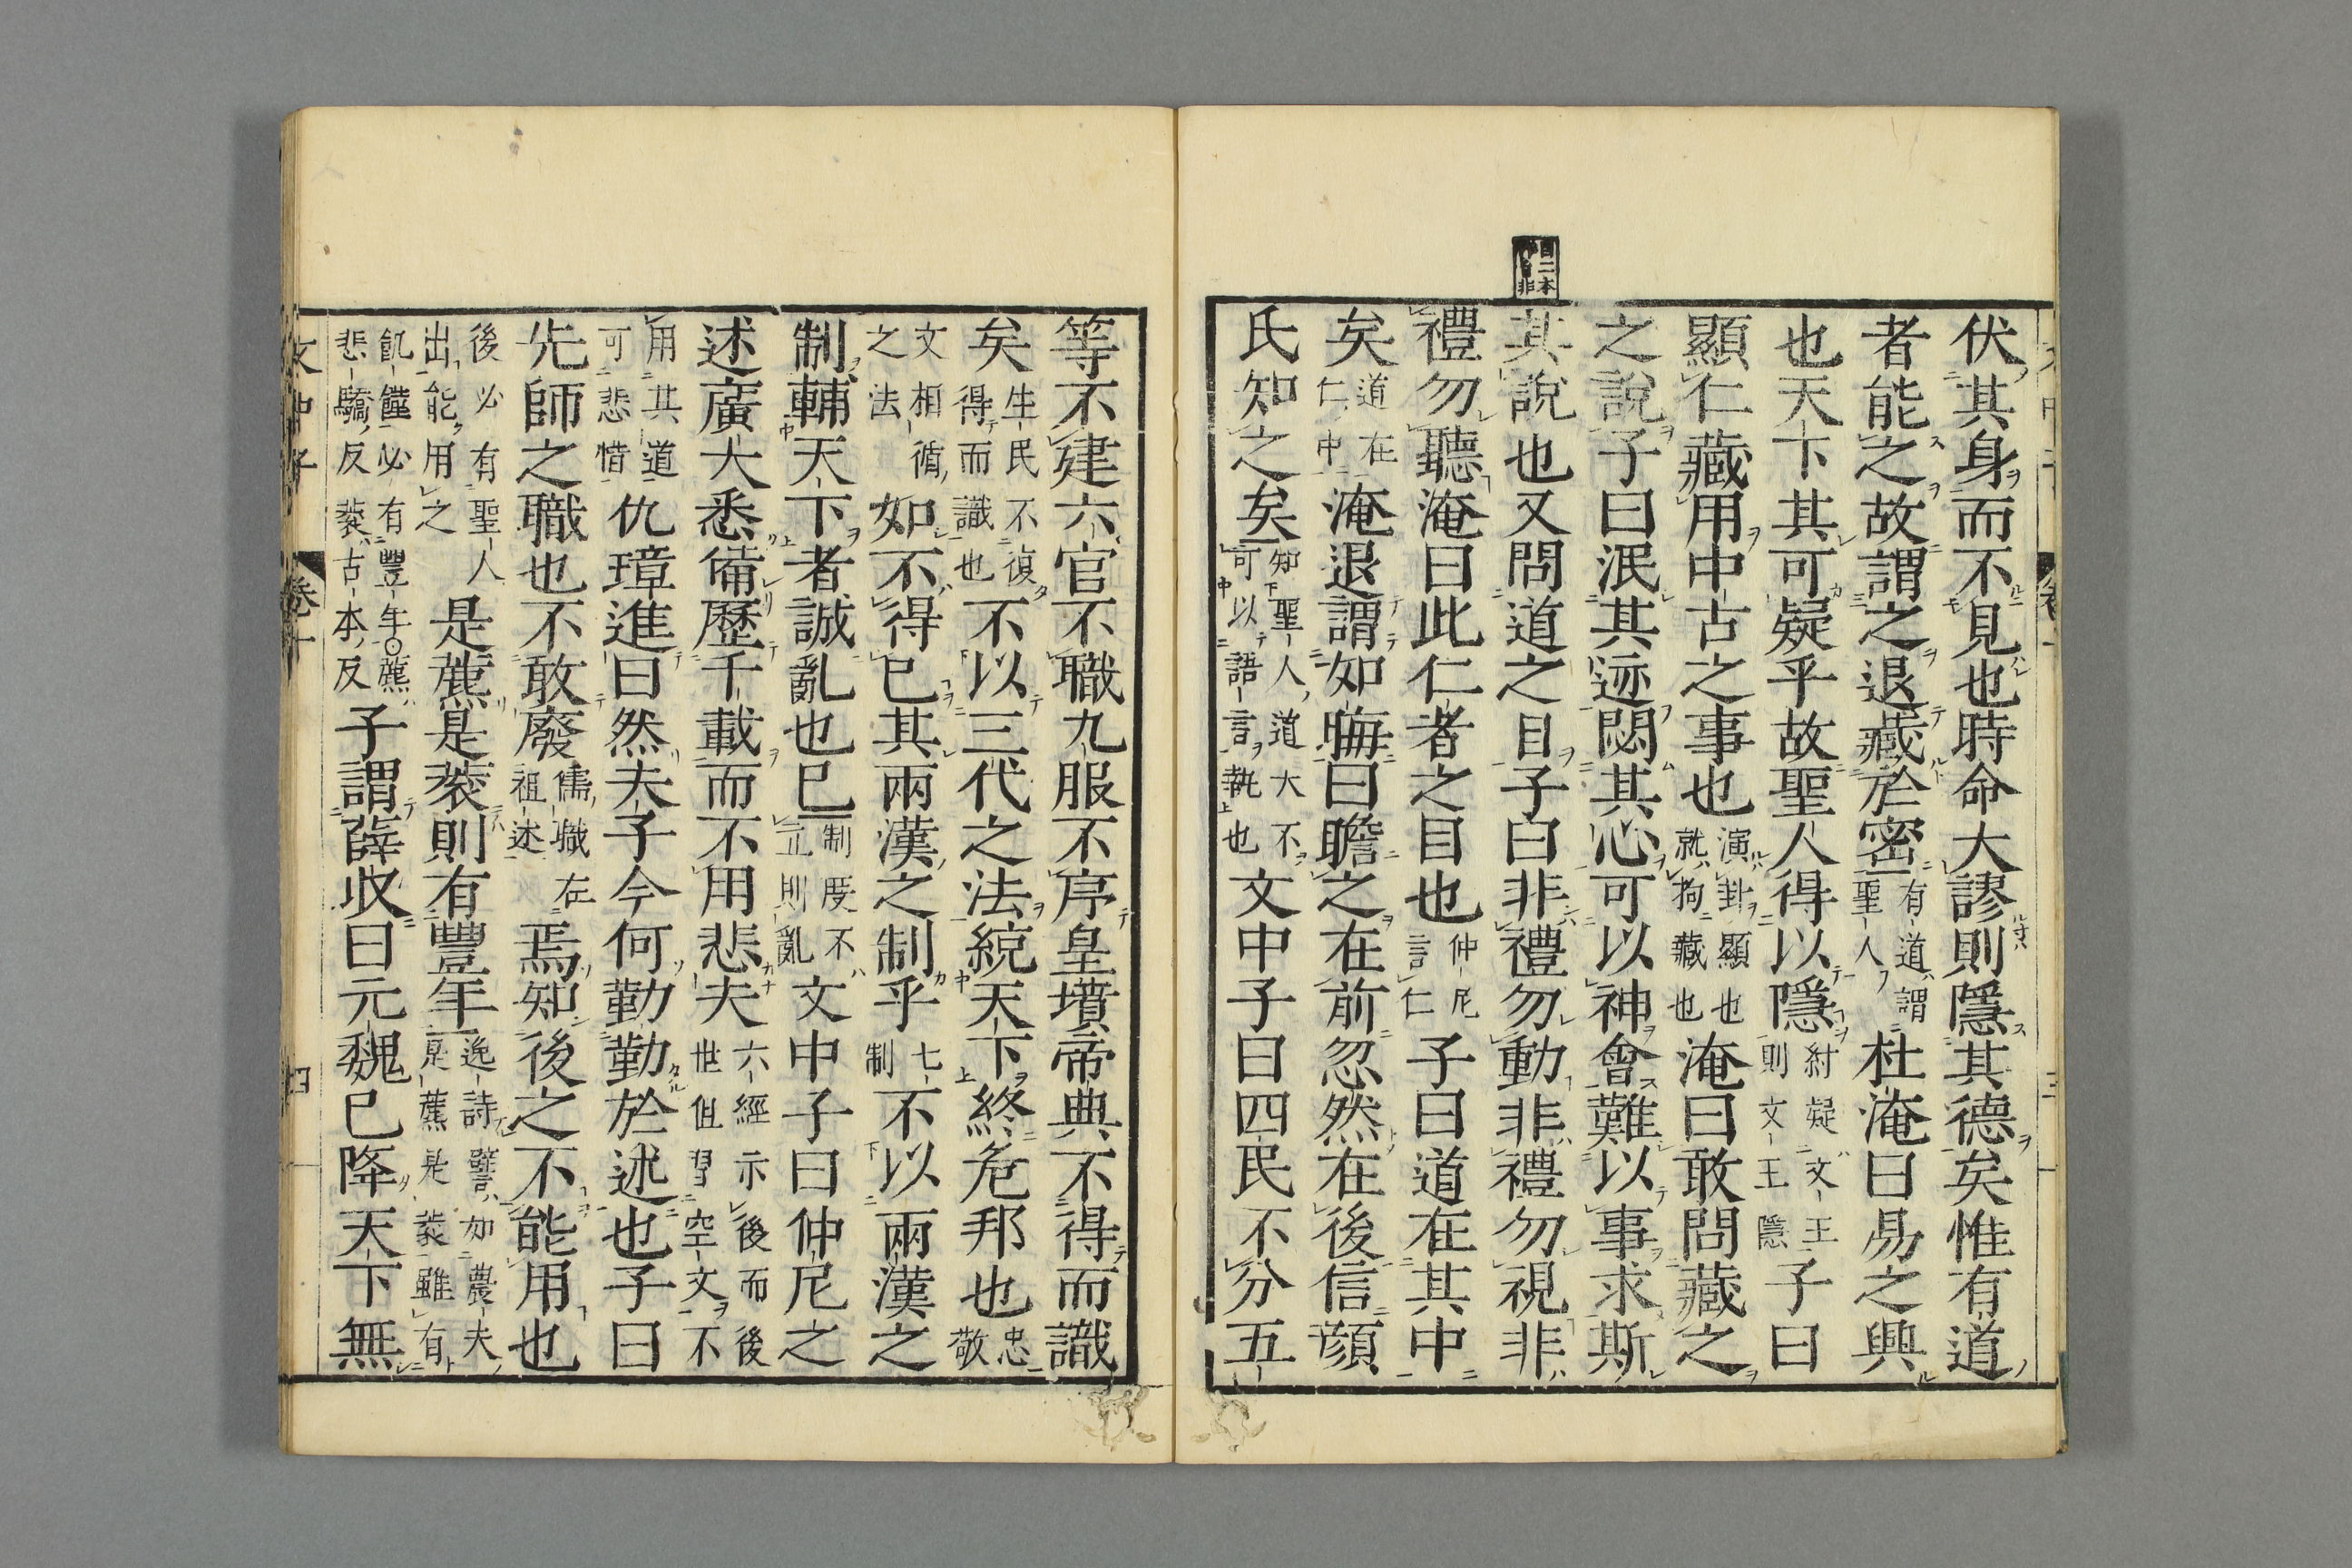 伏其身而不見也時命大謬則隱其德矣惟有道
者能之故謂之退藏於密有道謂聖人杜淹曰易之興
也天下其可疑乎故聖人得以隱紂疑文王則文王隱子曰
顯仁藏用中古之事也演卦顯也就拘藏也淹曰敢問藏之
之說子曰泯其迹閟其心可以神會難以事求斯
其說也又問道之目子曰非禮勿動非禮勿視非
禮勿聽淹曰此仁者之目也仲尼言仁子曰道在其中
矣道在仁中淹退謂如晦曰瞻之在前忽然在後信顏
氏知之矣知聖人道大不可以語言執也文中子曰四民不分五
等不建六官不職九服不序皇墳帝典不得而識
矣生民不復得而識也不以三代之法統天下終危邦也忠敬
文相循之法如不得已其兩漢之制乎七制不以兩漢之
制輔天下者誠亂也已制度不立則亂文中子曰仲尼之
述廣大悉備歷千載而不用悲夫六經示後而後世但習空文不
用其道可悲惜仇璋進曰然夫子今何勤勤於述也子曰
先師之職也不敢廢儒職在祖述焉知後之不能用也
後必有聖人出能用之是藨是蔉則有豐年逸詩譬如農夫是藨是蔉雖有
飢饉必有豐年○藨悲驕反蔉古本反子謂薛收曰元魏已降天下無
文中子 卷十 四